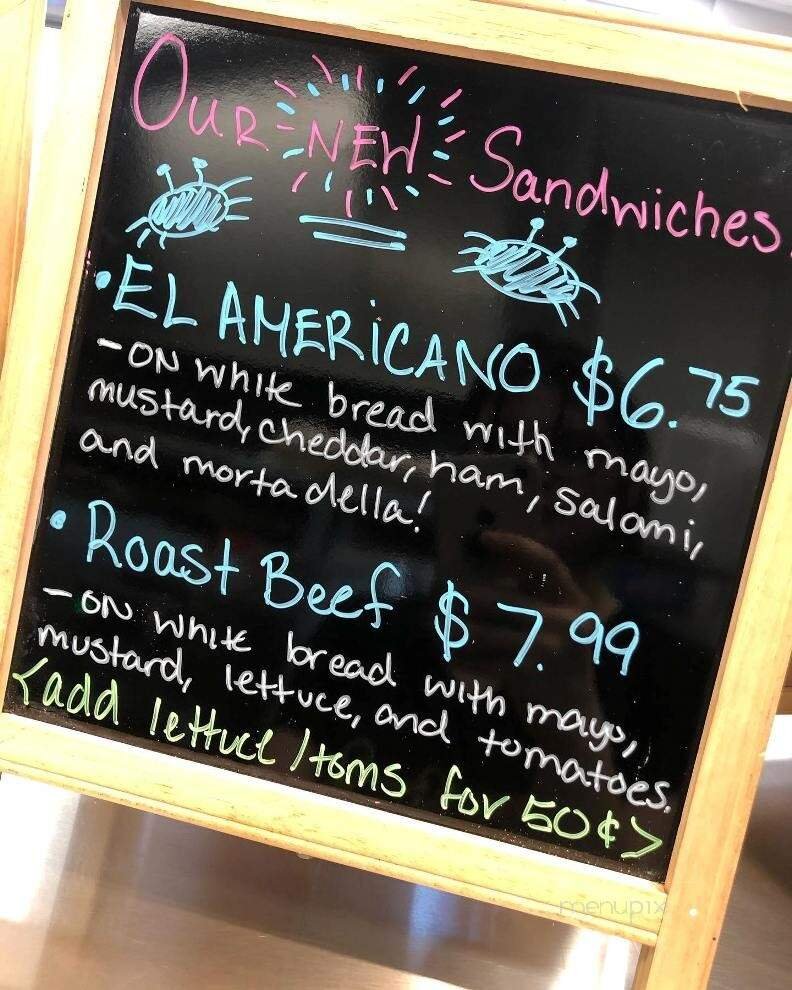 OUR NEW Sandwiches.
• EL AMERICANO $6.75
- ON white bread with mayo,
mustard, cheddar, ham, salami,
and mortadella!
• Roast Beef $7.99
- ON white bread with mayo,
mustard, lettuce, and tomatoes.
<add lettuce/toms for 50¢>
menupix